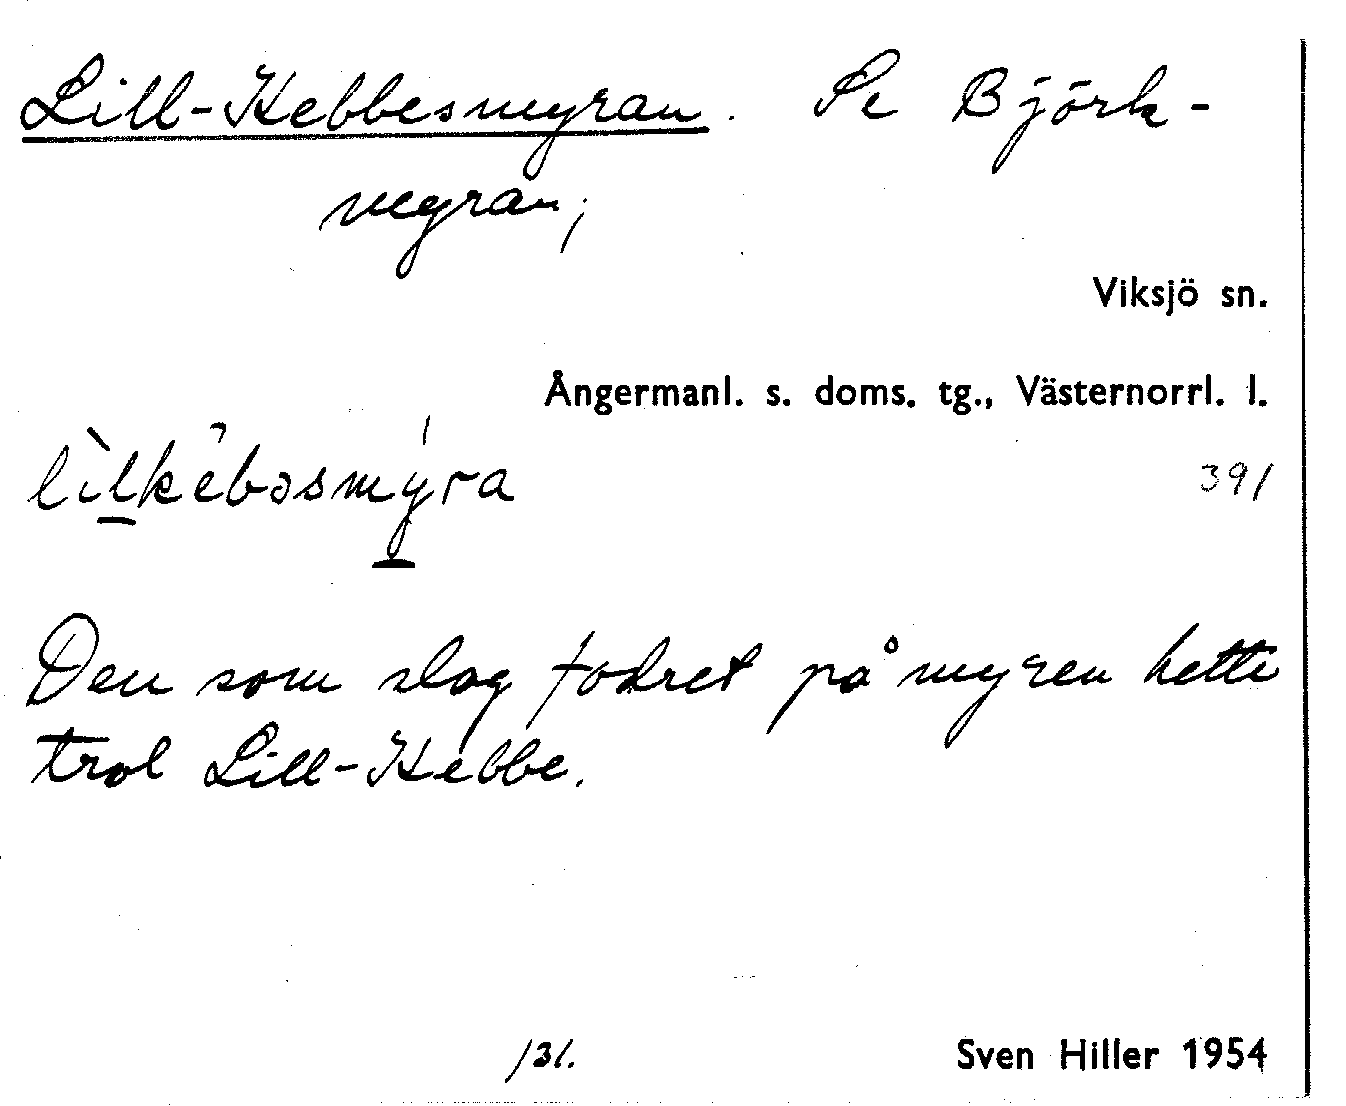 Lill-Kebbesmyran. Se Björk-
myran;
Viksjö sn.
Ångermanl. s. doms. tg., Västernorrl. l.
lìlkêbəsmýra
391
Den som slog fodret på myren hette
trol Lill-Kebbe.
131.
Sven Hiller 1954